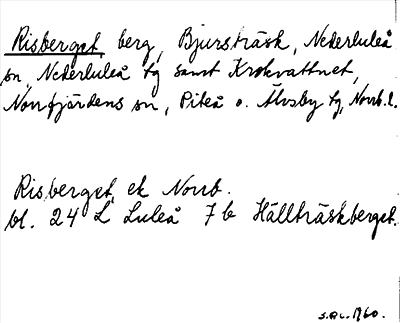 Risberget, berg, Bjursträsk, Nederluleå
sn, Nederluleå tg samt Krokvattnet,
Norrfjärdens sn, Piteå o. Älvsby tg, Norrb. l.
Risberget, ek Norrb.
bl. 24 L Luleå 7 b Hällträskberget.
1960.